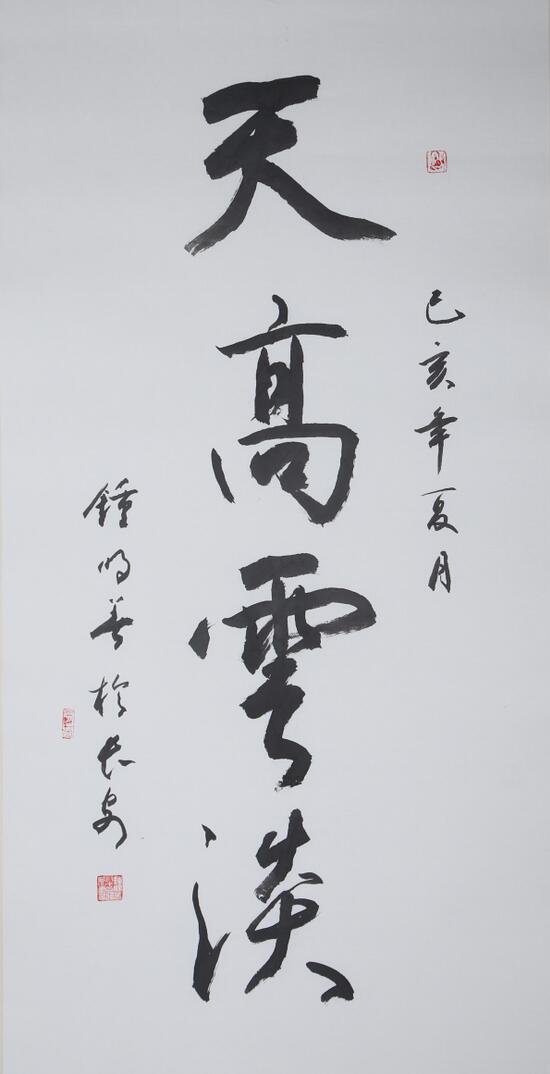 己亥年夏月
天高雲淡
鍾明善於长安